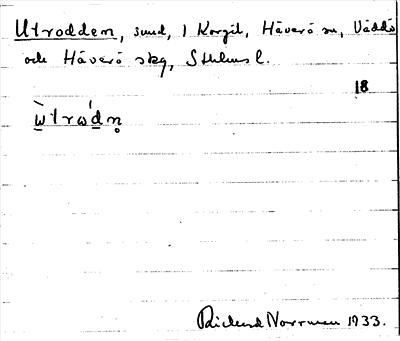 Utrodden, sund, i Korgil, Häverö sn, Väddö
och Häverö skg, Sthlms l.
18
Richard Norrman 1933.